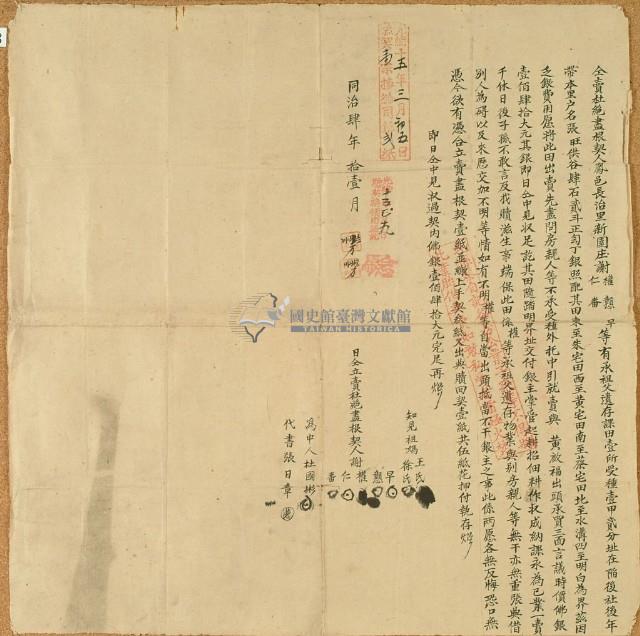 仝立賣杜絕盡根契人鳳邑長治里新園庄謝權懇早仁番等有承祖父遺存課田壹所受種壹甲貳分址在隘後社後年
帶本里户名張旺供谷肆石貳斗正勻丁銀照配其田東至朱宅田西至黃宅田南至蔡宅田北至水溝四至明白為界茲因
乏銀費用愿將此田出賣先盡問房親人等不承受種外托中引就賣與黃啟福出頭承買三面言議時價佛銀
壹佰肆拾大元其銀即日仝中見收足訖其田隨踏明界址交付銀主掌管起耕招佃耕作收成納課永為己業一賣
千休日後子孫不敢言及找贖滋生事端保此田係權等承祖父遺存物業與別房親人等無干亦無重張典借
別人為碍以及來歷交加不明等情如有不明權等自當出頭抵當不干銀主之事此係兩愿各無反悔恐口無
憑今欲有憑合立賣盡根契壹紙並繳上手契叁紙又出典贖回契壹紙共伍紙花押付執存炤
即日仝中見收過契內佛銀壹佰肆拾大元完足再炤
知見祖媽王氏徐氏
日仝立賣杜絕盡根契人謝權懇早仁番
為中人杜國彬
代書張日章
同治肆年拾壹月
十五年三月初五日
國史館臺灣文獻館
TAIWAN HISTORICA